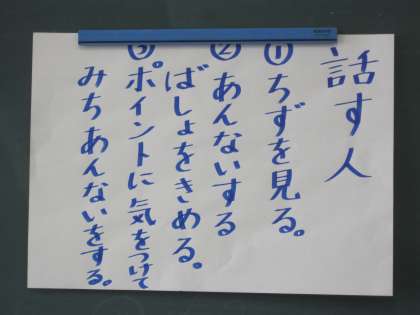 話す人
①ちずを見る。
②あんないする
ばしょをきめる。
③ポイントに気をつけて
みちあんないをする。